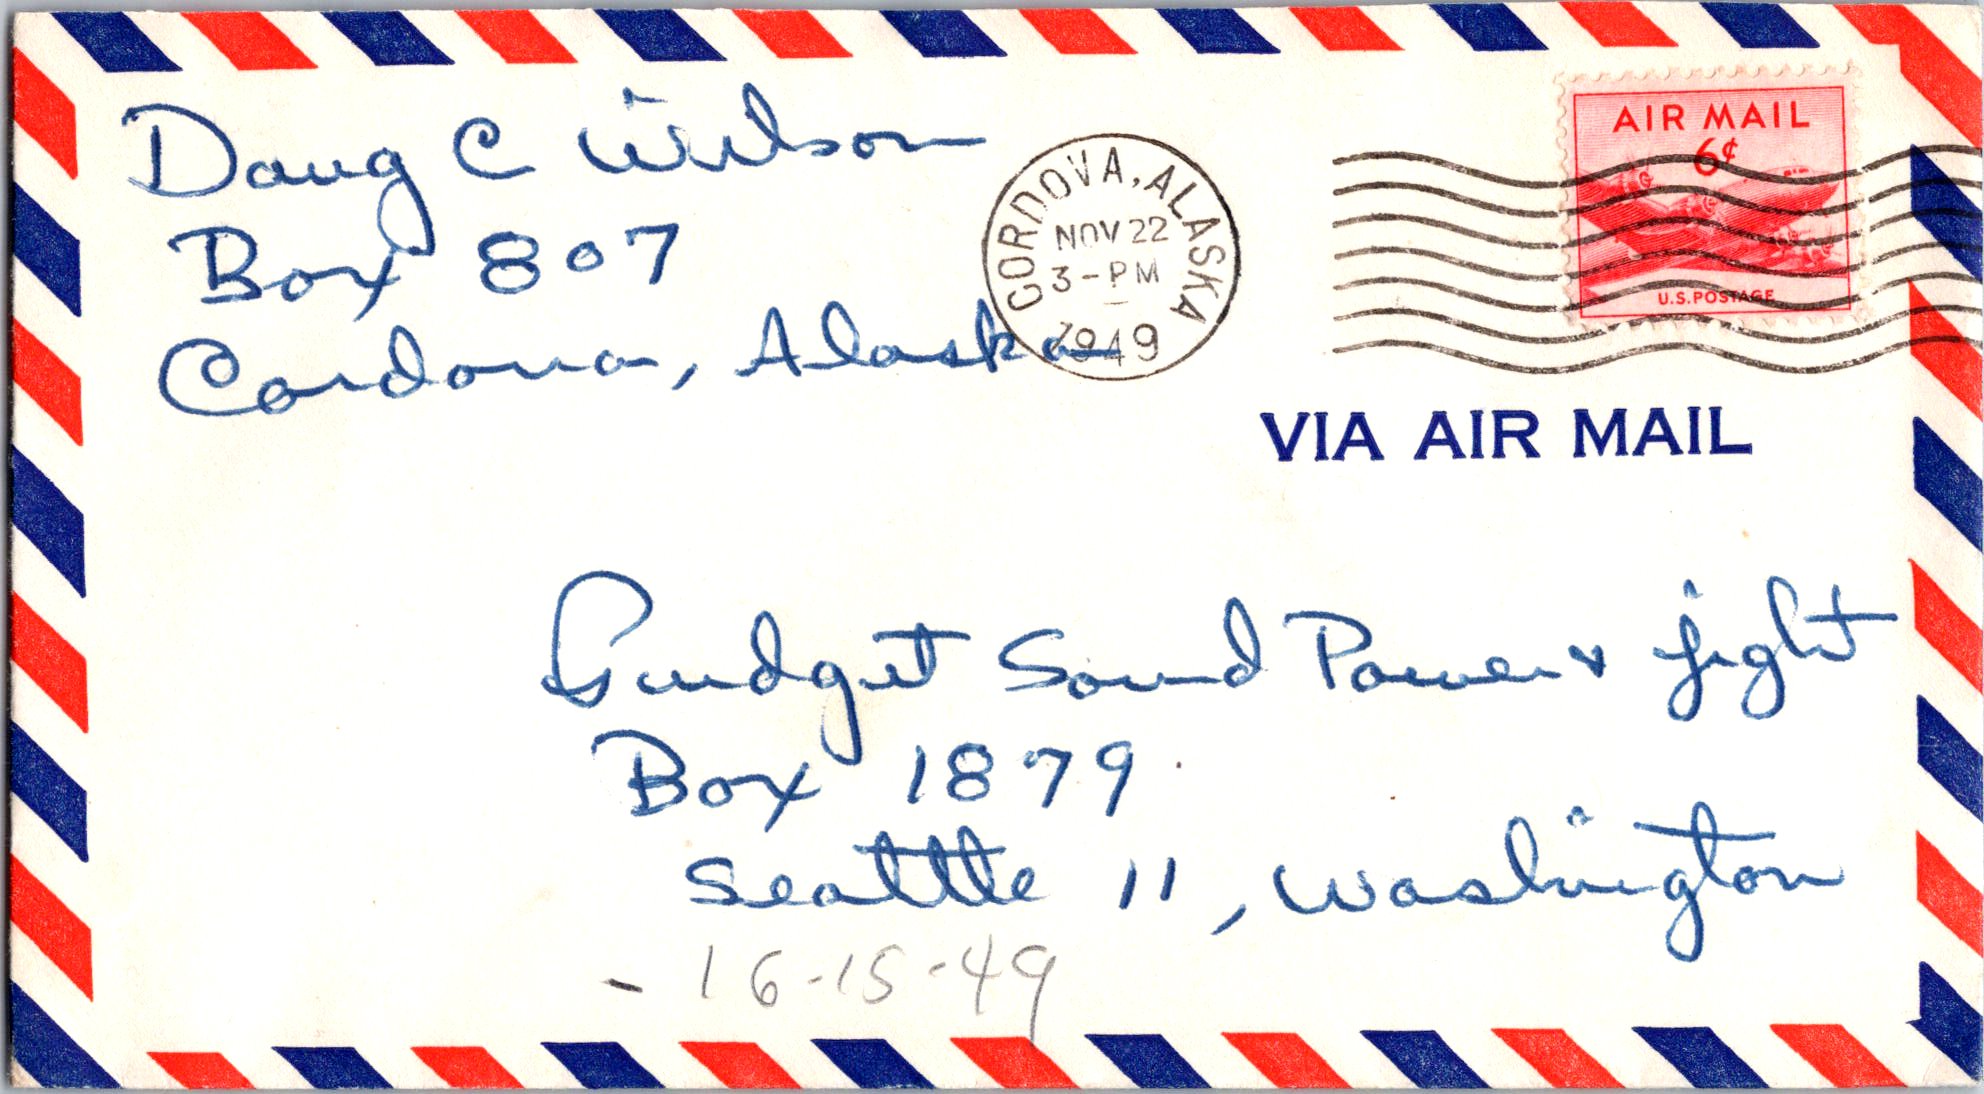 Doug C Wilson
Box 807
Cordova, Alaska
CORDOVA, ALASKA
NOV 22
3-PM
1949
AIR MAIL
6¢
U.S. POSTAGE
VIA AIR MAIL
Pudget Sound Power & Light
Box 1879
Seattle 11, Washington
- 16-15-49